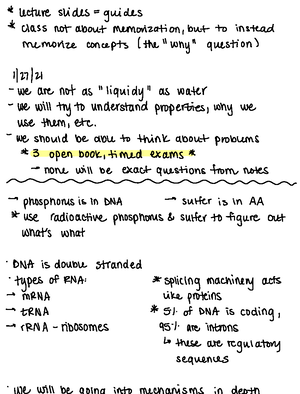 * lecture slides = guides
* class not about memorization, but to instead
memorize concepts (the "why" question)
1/27/21
- we are not as "liquidy" as water
- we will try to understand properties, why we
use them, etc.
- we should be able to think about problems
* 3 open book, timed exams *
- none will be exact questions from notes
→ phosphorus is in DNA → sulfer is in AA
* use radioactive phosphorus & sulfer to figure out
what's what
· DNA is double stranded
· types of RNA:
→ mRNA
→ tRNA
→ rRNA - ribosomes
* splicing machinery acts
like proteins
* 5% of DNA is coding,
95% are introns
↳ these are regulatory
sequences
· We will be going into mechanisms in depth